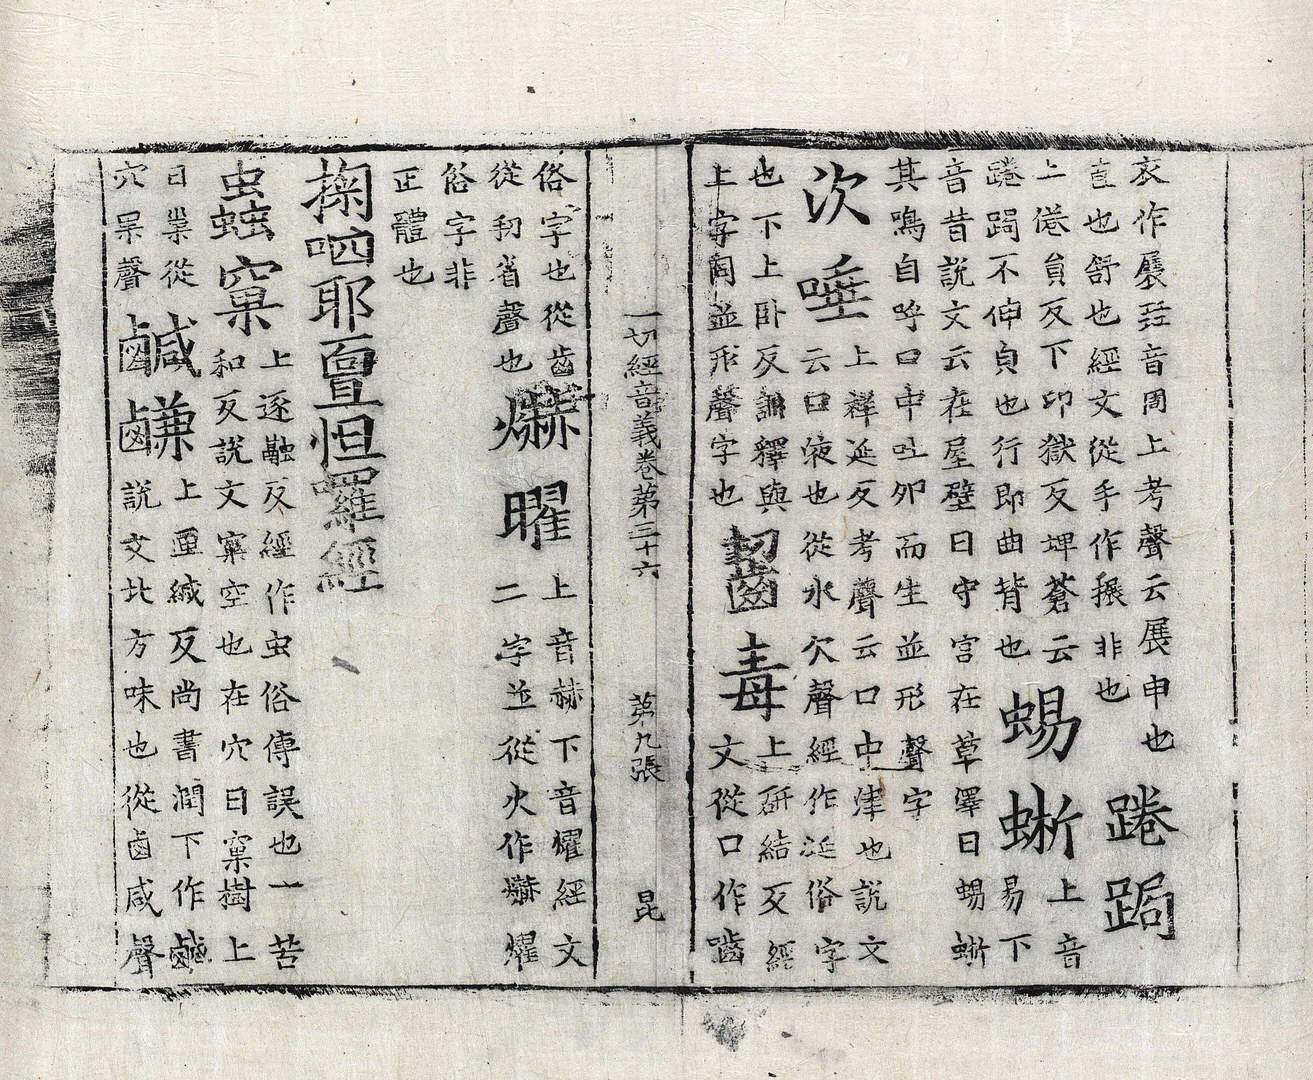 衣作展𠭖音周上考聲云展申也
直也舒也經文從手作搌非也踡跼
上倦員反下卬獄反埤蒼云蜴蜥上音
踡跼不伸皃也行即曲背也易下
音昔說文云在屋壁曰守宮在草澤曰蜴蜥
其鳴自呼口中吐卵而生並形聲字
次唾上祥延反考聲云口中津也說文
云口液也從水欠聲經作涎俗字
也下土臥反訓釋與齧毒上研結反經
上字同並形聲字也文從口作嚙
一切經音義卷第三十六 第九張 昆
俗字也從齒爀曜上音赫下音耀經文
從㓞省聲也二字並從火作爀燿
俗字非
正體也
掬呬耶亶怛囉經
蟲窠上逐融反經作虫俗傳誤也一苦
和反說文窠空也在穴曰窠樹上
曰巢從鹹鹻上匣緘反尚書潤下作鹹
穴果聲說文北方味也從鹵咸聲